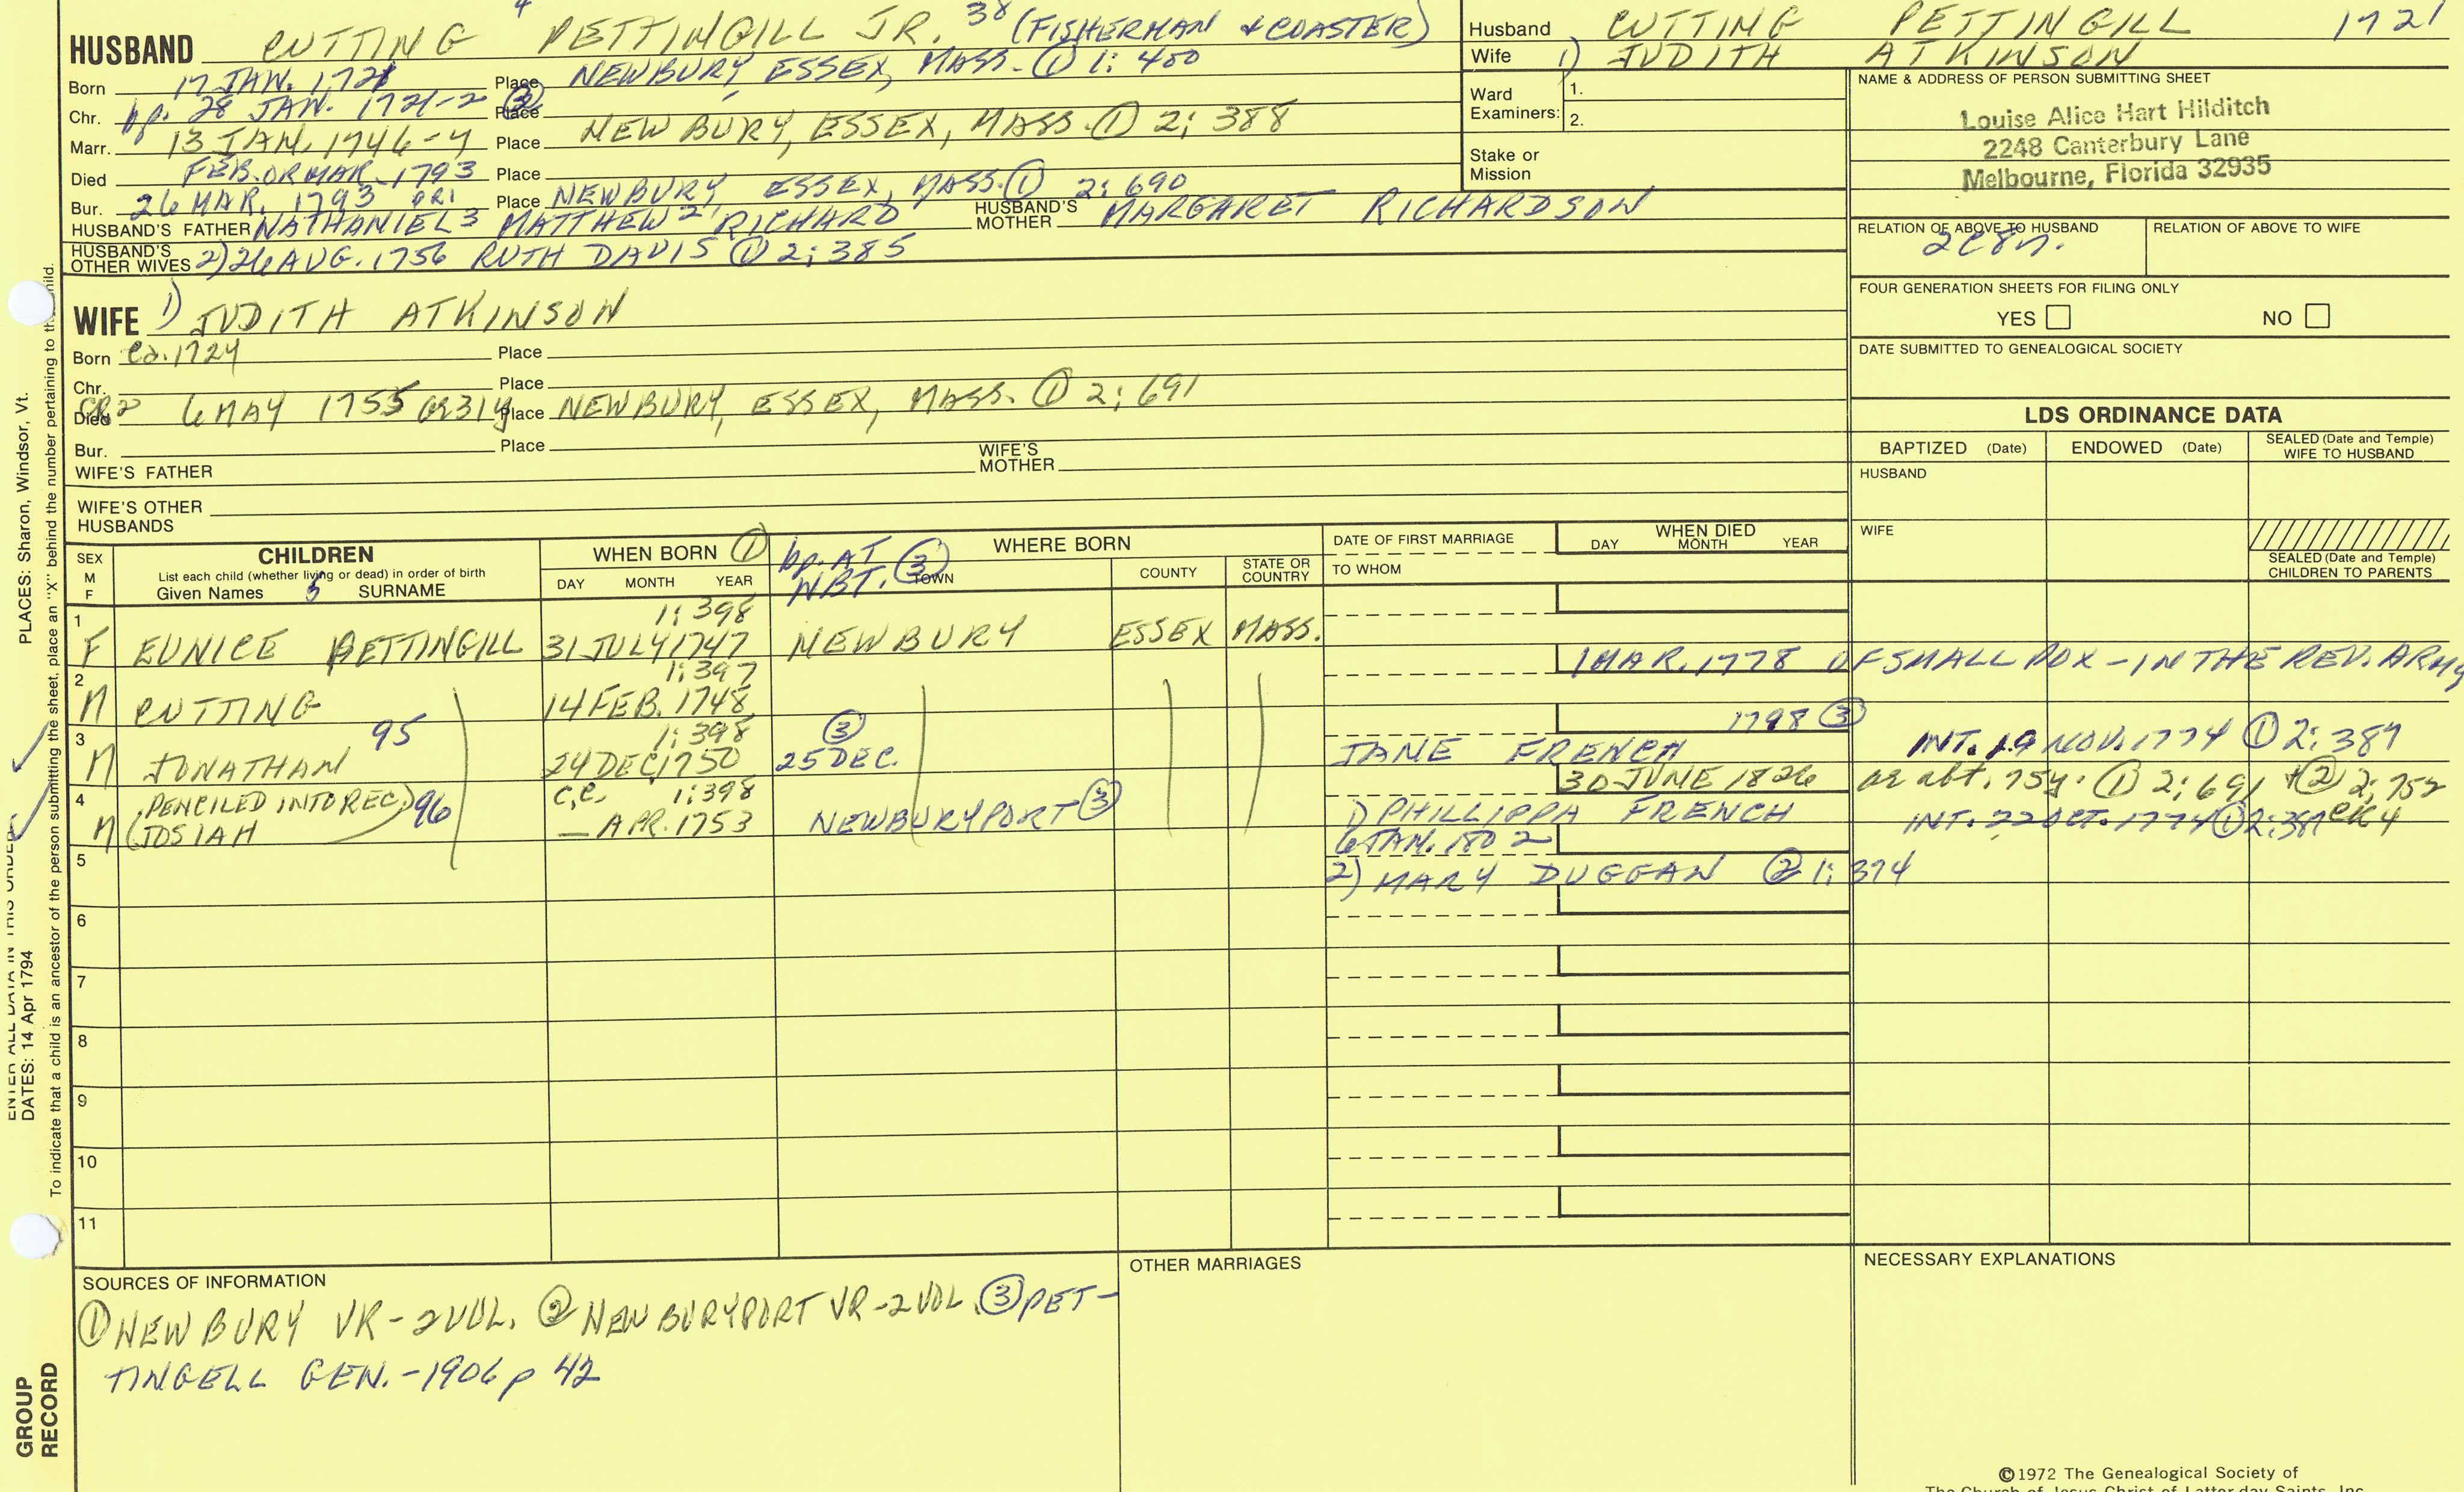 HUSBAND CUTTING 4 PETTINGILL JR. 38 (FISHERMAN & COASTER)
Born 17 JAN. 1721 Place NEWBURY, ESSEX, MASS. ① 1: 400
Chr. bp. 28 JAN. 1721-2 ③ Place
Marr. 13 JAN. 1746-7 Place NEWBURY, ESSEX, MASS. ① 2: 388
Died FEB. OR MAR. 1793 Place
Bur. 26 MAR. 1793 GR1 Place NEWBURY, ESSEX, MASS. ① 2: 690
HUSBAND'S FATHER NATHANIEL 3 MATTHEW 2 RICHARD HUSBAND'S MOTHER MARGARET RICHARDSON
HUSBAND'S OTHER WIVES 2) 26 AUG. 1756 RUTH DAVIS ① 2: 385
Husband CUTTING PETTINGILL 1721
Wife 1) JUDITH ATKINSON
Ward Examiners: 1.
2.
Stake or Mission
NAME & ADDRESS OF PERSON SUBMITTING SHEET
Louise Alice Hart Hilditch
2248 Canterbury Lane
Melbourne, Florida 32935
RELATION OF ABOVE TO HUSBAND RELATION OF ABOVE TO WIFE
2C8r.
FOUR GENERATION SHEETS FOR FILING ONLY
YES NO
DATE SUBMITTED TO GENEALOGICAL SOCIETY
WIFE 1) JUDITH ATKINSON
Born ca. 1724 Place
Chr. Place
Died GR2 6 MAY 1755 ae 31y Place NEWBURY, ESSEX, MASS. ① 2: 691
Bur. Place
WIFE'S FATHER WIFE'S MOTHER
WIFE'S OTHER HUSBANDS
LDS ORDINANCE DATA
BAPTIZED (Date) ENDOWED (Date) SEALED (Date and Temple) WIFE TO HUSBAND
HUSBAND
WIFE
SEALED (Date and Temple) CHILDREN TO PARENTS
SEX M F
CHILDREN
List each child (whether living or dead) in order of birth
Given Names 5 SURNAME
WHEN BORN ①
DAY MONTH YEAR
bp. AT NBT. ③
WHERE BORN
TOWN COUNTY STATE OR COUNTRY
DATE OF FIRST MARRIAGE
TO WHOM
WHEN DIED
DAY MONTH YEAR
1 1: 398
F EUNICE PETTINGILL 31 JULY 1747 NEWBURY ESSEX MASS.
2 1: 397 1 MAR. 1778 OF SMALL POX - IN THE REV. ARMY
M CUTTING 14 FEB. 1748
3 95 1: 398 ③ 1798 ③
M JONATHAN 24 DEC. 1750 25 DEC. JANE FRENCH INT. 19 NOV. 1774 ① 2: 387
4 (PENCILED INTO REC) 96 c.c. 1: 398 30 JUNE 1826 ae abt. 75y. ① 2: 691 + ② 2: 752
M (JOSIAH — APR. 1753 NEWBURYPORT ③ 1) PHILLIPPA FRENCH INT. 22 OCT. 1774 ① 2: 387 CR4
5 6 JAN. 1802
2) MARY DUGGAN ② 1: 374
6
7
8
9
10
11
SOURCES OF INFORMATION
① NEWBURY VR - 2 VOL. ② NEWBURYPORT VR - 2 VOL. ③ PET-
TINGELL GEN. - 1906 p 42
OTHER MARRIAGES
NECESSARY EXPLANATIONS
©1972 The Genealogical Society of
The Church of Jesus Christ of Latter-day Saints, Inc.
PLACES: Sharon, Windsor, Vt.
ENTER ALL DATA IN THIS ORDER
DATES: 14 Apr 1794
To indicate that a child is an ancestor of the person submitting the sheet, place an "X" behind the number pertaining to that child.
GROUP
RECORD